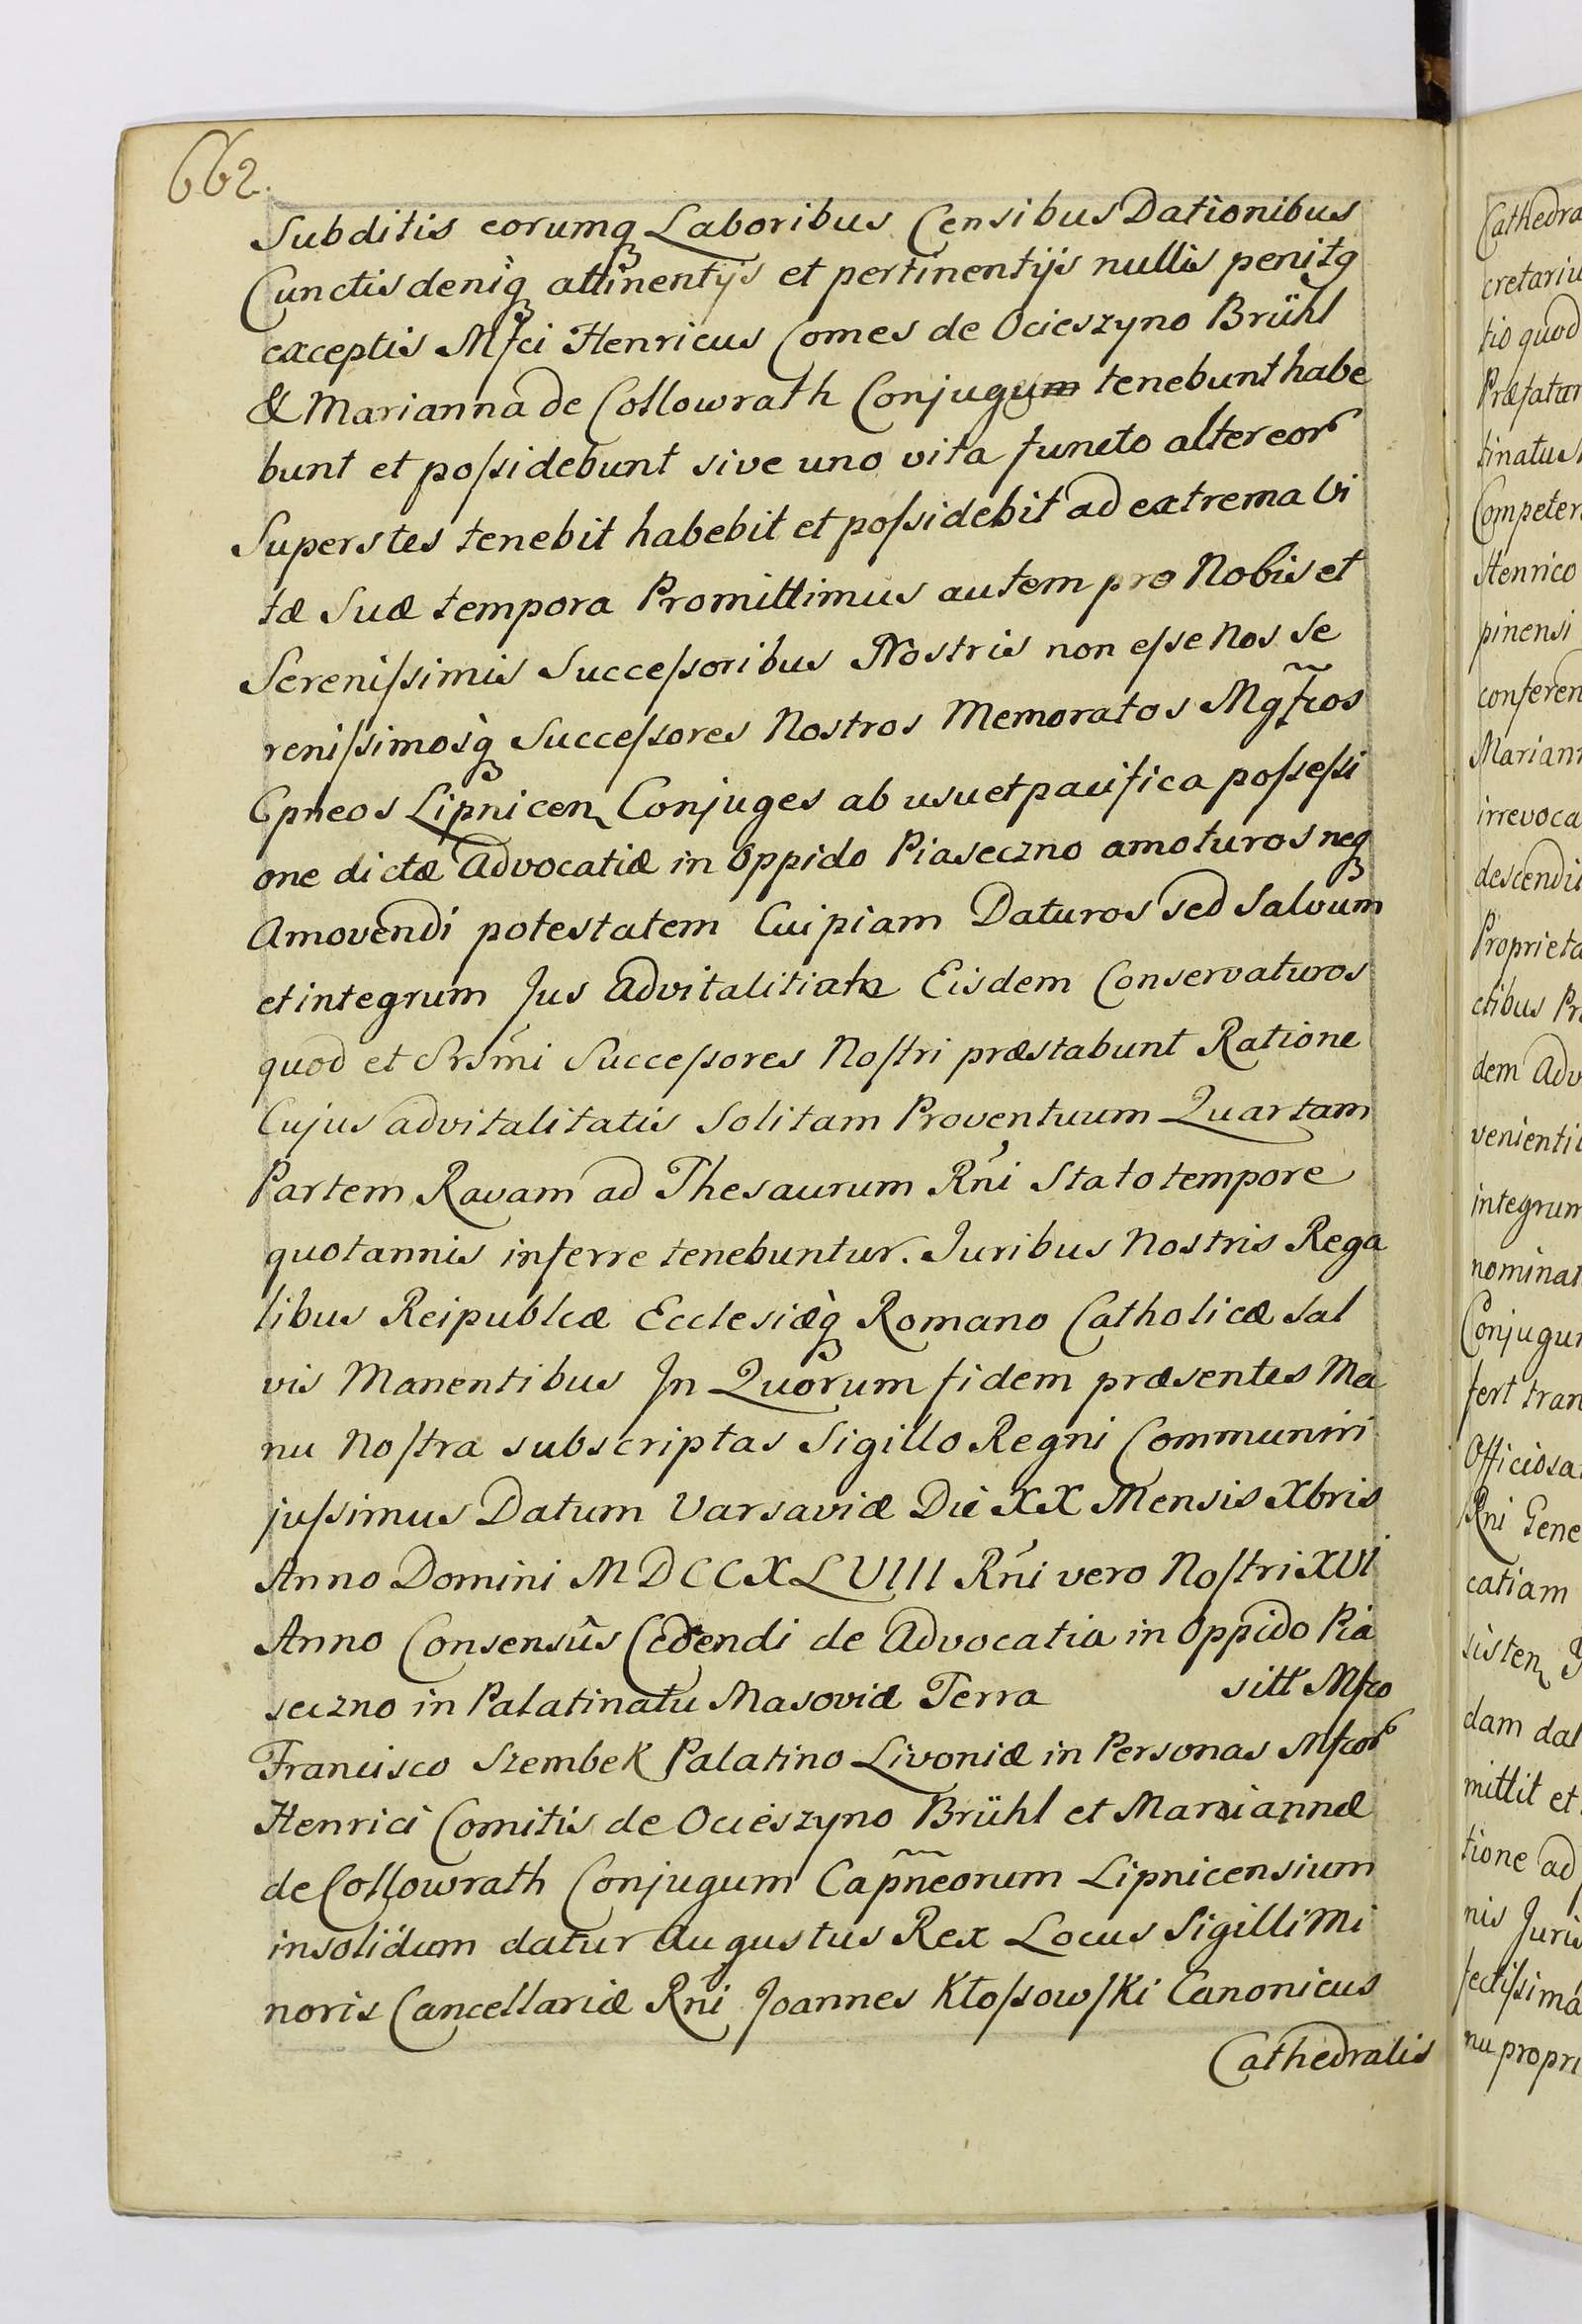 662.
Subditis eorumq Laboribus Censibus Dationibus
Cunctis deniq attinentijs et pertinentijs nullis penitq
exceptis Mfci Henricus Comes de Ocieszyno Brühl
& Marianna de Collowrath Conjugum tenebunt habe
bunt et poſsidebunt sive uno vita functo alter eor
Superstes tenebit habebit et poſsidebit ad extrema Vi
tæ Suæ tempora Promittimus autem pro Nobis et
Sereniſsimis Succeſsoribus Nostris non eſse Nos Se
reniſsimosq Succeſsores Nostros Memoratos Mgfcos
Cpneos Lipnicen Conjuges ab usu et pacifica poſseſsi
one dictæ Advocatiæ in Oppido Piaseczno amoturos neq
Amovendi potestatem Cuipiam Daturos sed Salvum
et integrum Jus Advitalitiate Eisdem Conservaturos
quod et Srsmi Succeſsores Noſtri præstabunt Ratione
Cujus advitalitatis Solitam Proventuum Quartam
Partem Ravam ad Thesaurum Rñi Stato tempore
quotannis inferre tenebuntur. Juribus Nostris Rega
libus Reipublcæ Ecclesiæq Romano Catholicæ Sal
vis Manentibus In Quorum fidem præsentes Ma
nu Noſtra subscriptas Sigillo Regni Communiri
juſsimus Datum Varsaviæ Die XX Mensis Xbris
Anno Domini MDCCXLVIII Rñi vero Noſtri XVI
Anno Consensûs Cedendi de Advocatia in Oppido Pia
seczno in Palatinatu Masoviæ Terra sitt Mfco
Francisco Szembek Palatino Livoniæ in Personas Mfcor
Henrici Comitis de Ocieszyno Brühl et Mariannæ
de Collowrath Conjugum Capñeorum Lipnicensium
insolidum datur Augustus Rex Locus Sigilli Mi
noris Cancellariæ Rñi Joannes Kłoſsowſki Canonicus
Cathedralis
Cathedra
cretariu
tio quod
Præfatar
tinatus
Competen
Henrico
pinensi
conferen
Mariann
irrevoca
descendi
Proprieta
ctibus Pr
dem Adv
venienti
integrum
nominat
Conjugum
fert tran
Officiosa
Rni Gene
catiam
sisten
dam dat
mittit et
tione ad
nis Juris
fectiſsimá
nu propri